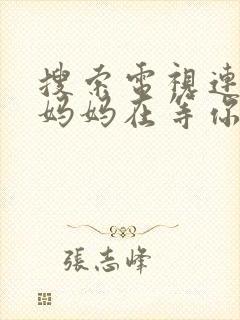 搜索電視連
妈妈在等你
張志峰